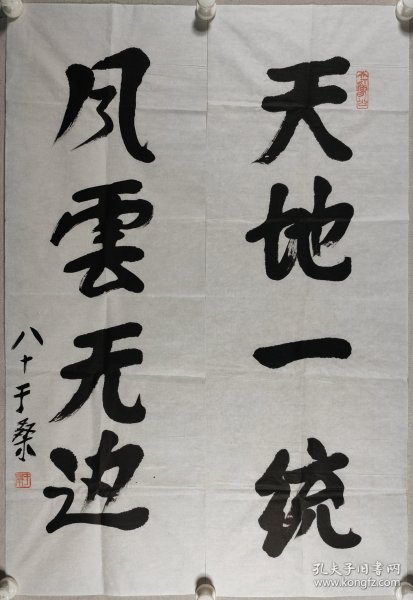 天地一统
风雲无边
八十于桑
孔夫子旧书网
www.kongfz.com